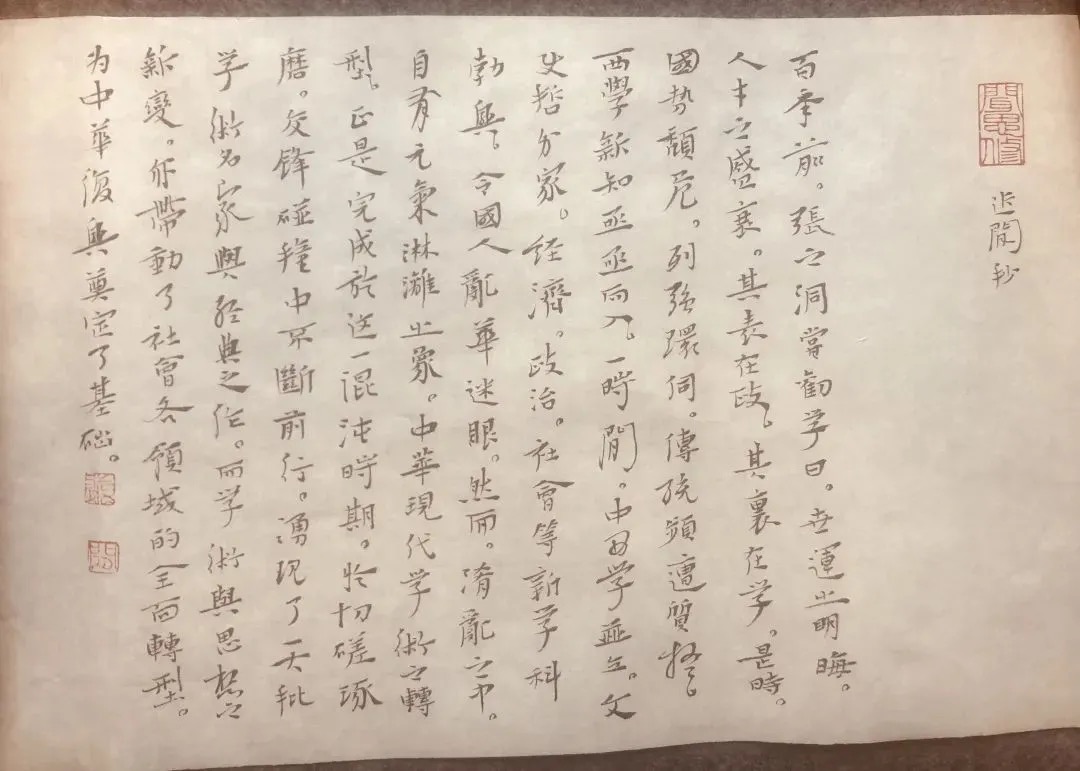 近闻鈔
百年前。張之洞嘗勸学曰。世運之明晦。
人才之盛衰。其表在政。其裏在学。是時。
國势頹危。列強環伺。傳統頻遭質疑。
西學新知亟亟而入。一時間。中西学並立。文
史哲分家。经濟。政治。社會等新学科
勃興。令國人亂華迷眼。然而。淆亂之中。
自有元氣淋灕之象。中華現代学術之轉
型。正是完成於这一混沌時期。於切磋琢
磨。交鋒碰撞中不斷前行。湧現了一大批
学術名家與经典之作。而学術與思想之
新變。亦帶動了社會各領域的全面轉型。
为中華復興奠定了基础。